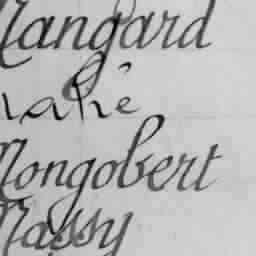 Mangard
Mongobert
Massy